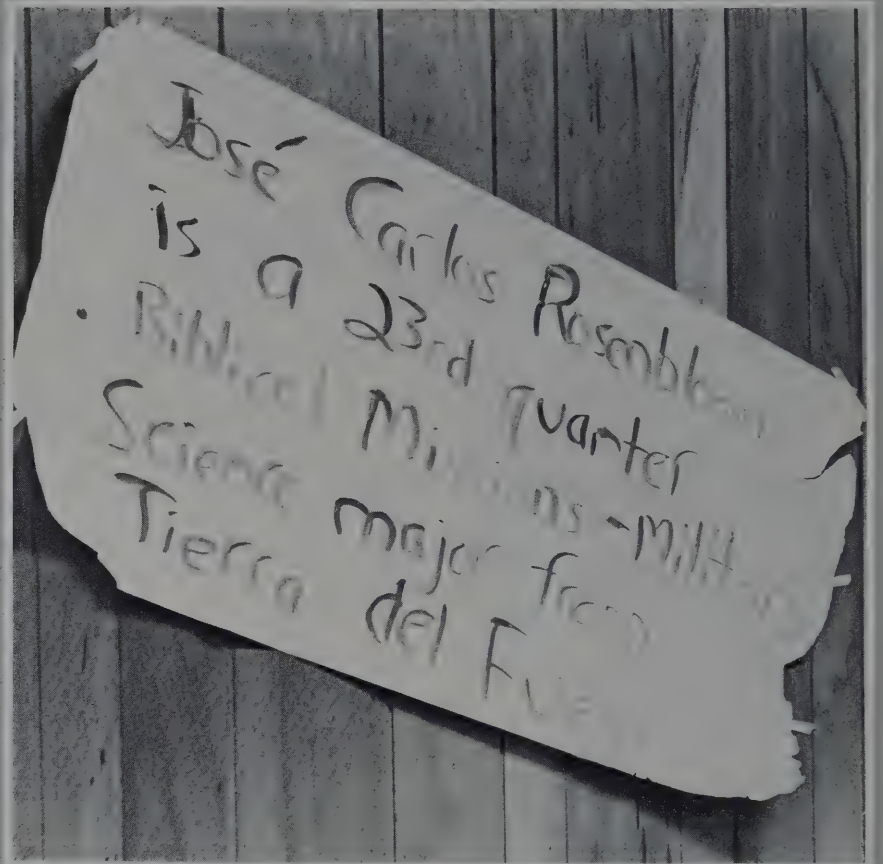 José Carlos Rosenbloom
is a 23rd quarter
Biblical Missions-Milit
Science major from
Tierra del Fue